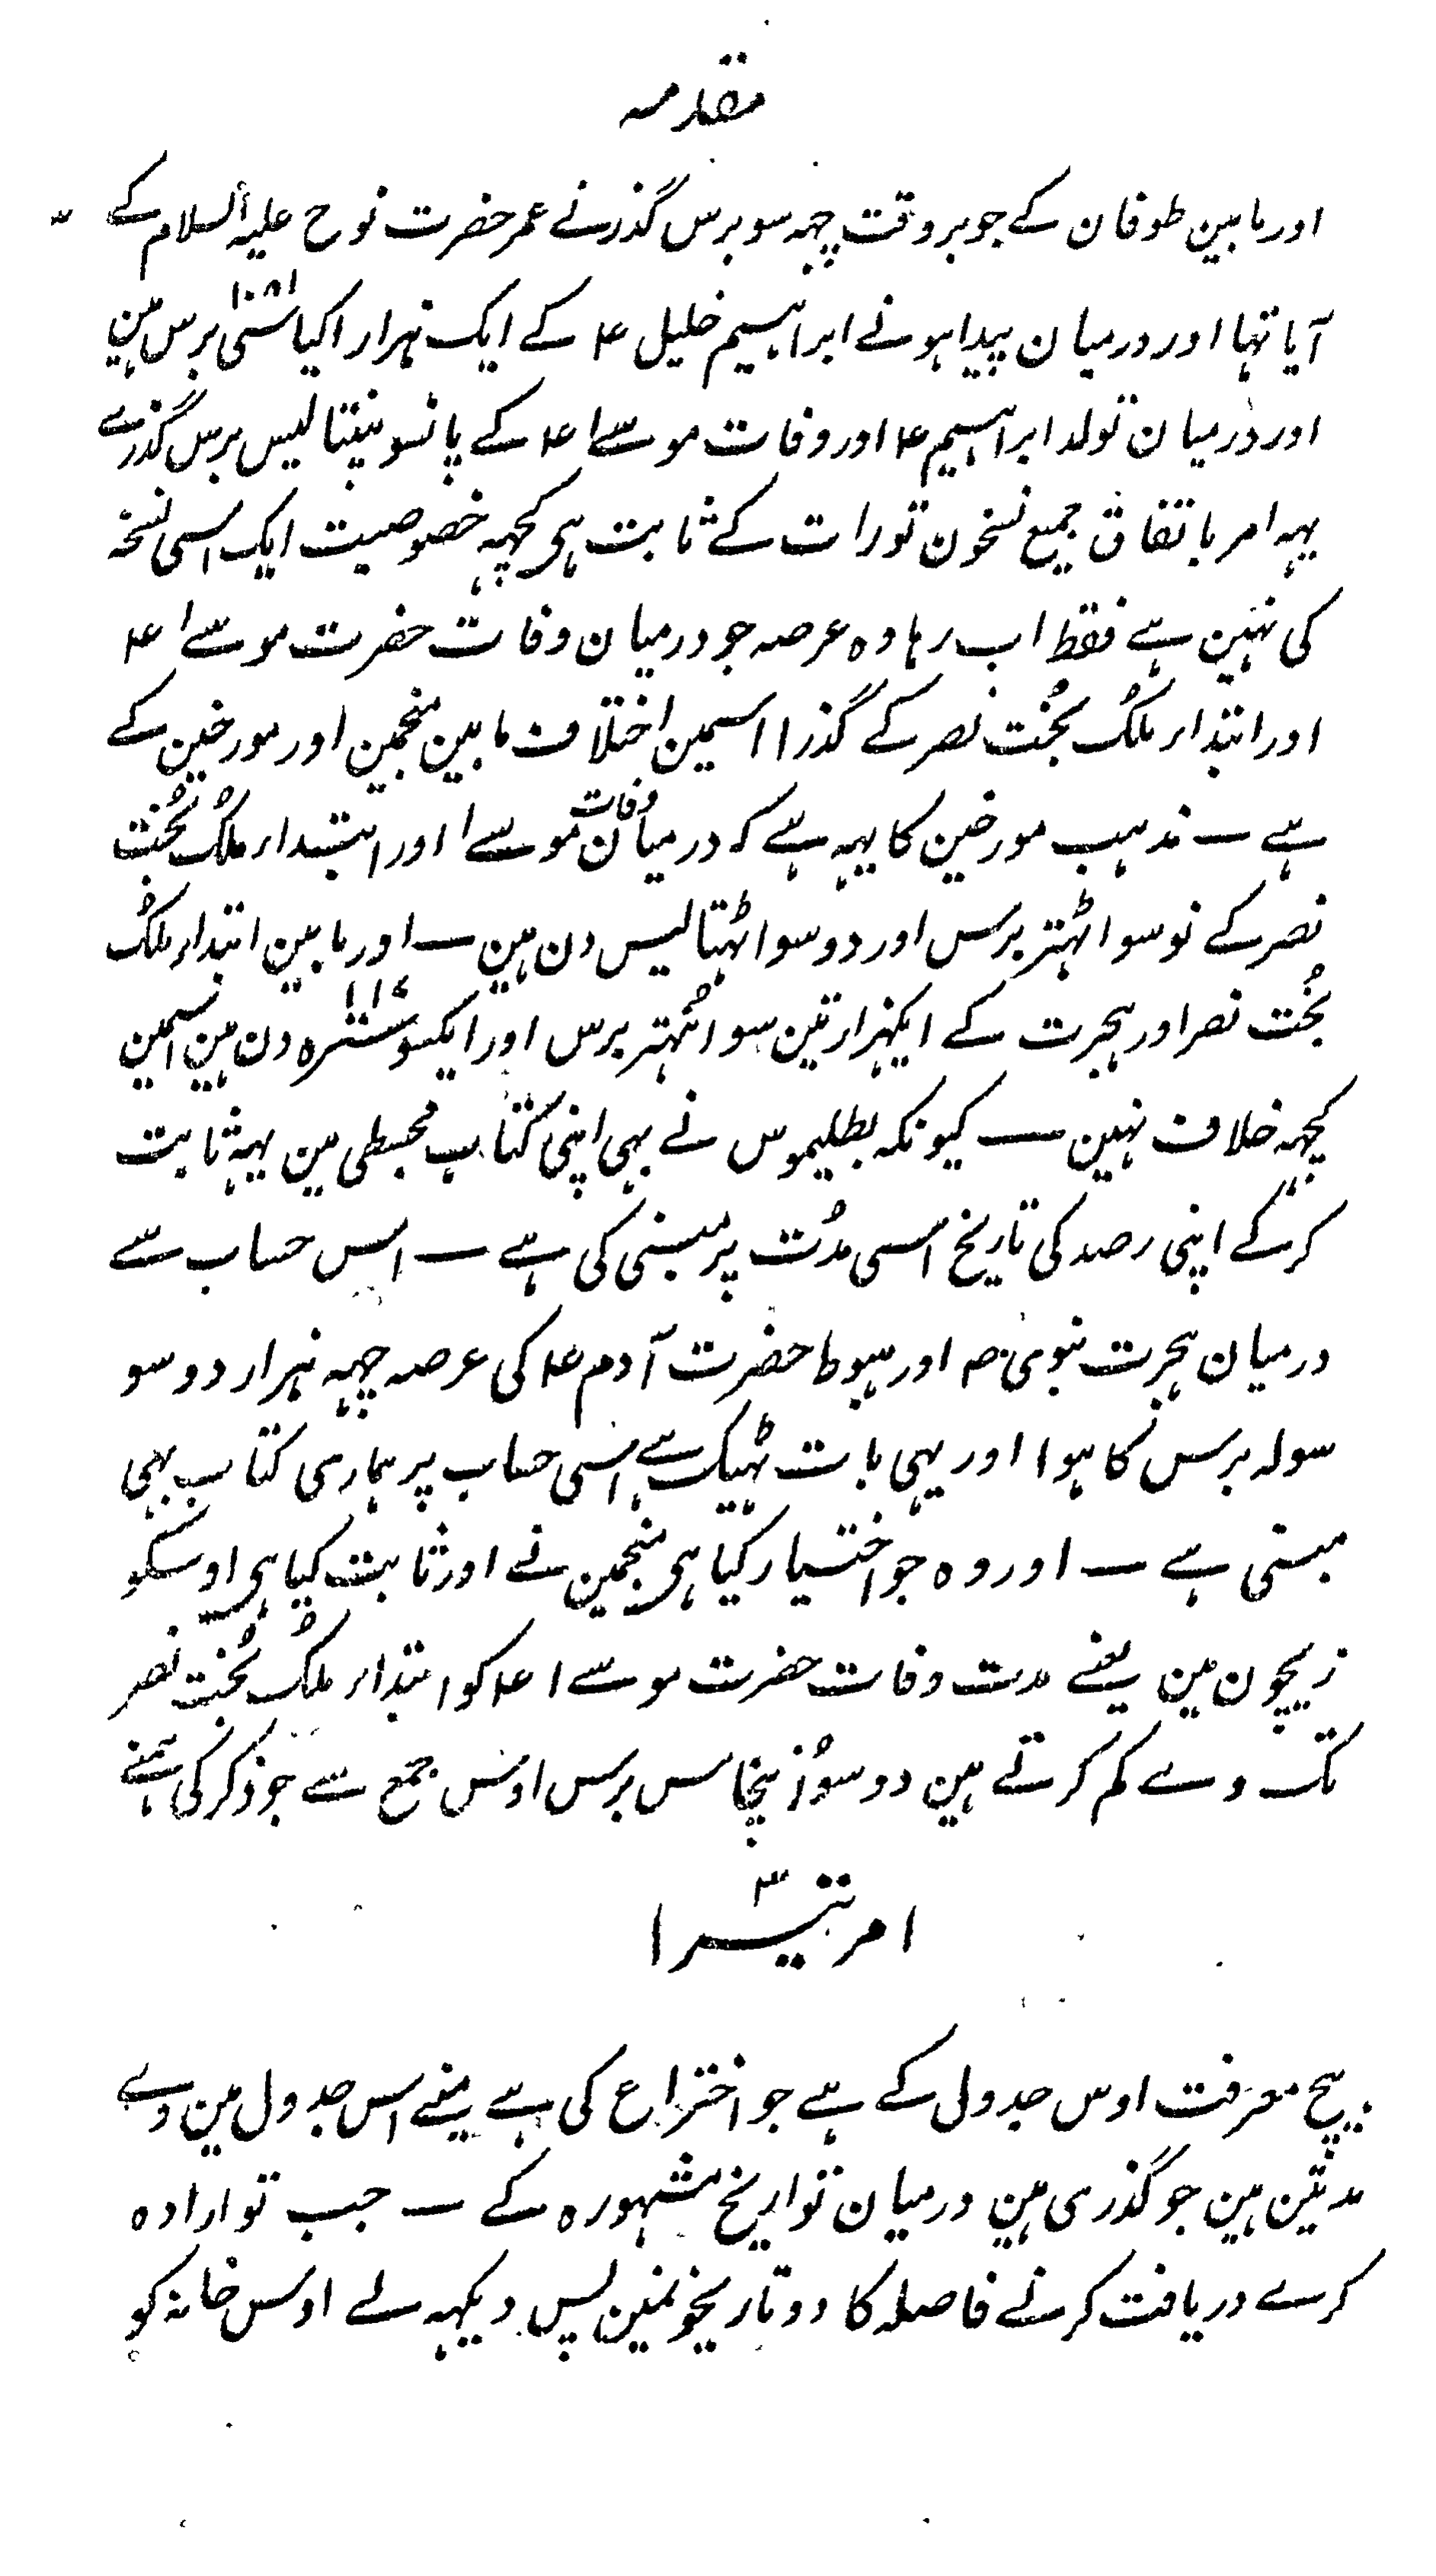 مقدمہ
اور مابین طوفان کے جو بروقت چہہ سو برس گذرنے عمر حضرت نوح علیہ السلام کے
۱۰۸۱
آیا تہا اور درمیان پیدا ہونے ابراہیم خلیل ۴ کے ایک ہزار اکیاسٹی برس ہین
اور درمیان تولد ابراہیم ۴ اور وفات موسےا ۴ کے پانسو پنتالیس برس گذرے
یہہ امر باتفاق جمیع نسخون تورات کے ثابت ہی کچہہ خصوصیت ایک اسی نسخہ
کی نہین ہے فقط اب رہا وہ عرصہ جو درمیان وفات حضرت موسےا ۴
اور ابتداء ملک بخت نصر کے گذرا اسمین اختلاف مابین منجمین اور مورخین کے
ہے — مذہب مورخین کا یہہ ہے کہ درمیان وفات موسےا اور ابتداء ملک بخت
نصر کے نو سو اٹہتر برس اور دو سو اٹہتالیس دن ہین — اور مابین ابتداء ملک
بخت نصر اور ہجرت کے ایکہزار تین سو انہتر برس اور ایکسو سترہ ۱۱۷ دن ہین اسمین
کچہہ خلاف نہین — کیونکہ بطلیموس نے بہی اپنی کتاب مجسطی مین یہہ ثابت
کرکے اپنی رصد کی تاریخ اسی مدت پر مبنی کی ہے — اس حساب سے
درمیان ہجرت نبوی ص اور ہبوط حضرت آدم ۴ کی عرصہ چہہ ہزار دو سو
سولہ برس کا ہوا اور یہی بات ٹہیک ہے اسی حساب پر ہماری کتاب بہی
مبنی ہے — اور وہ جو اختیار کیا ہی منجمین نے اور ثابت کیا ہی اوسکو
زیچون مین یعنے مدت وفات حضرت موسےا ۴ کو ابتداء ملک بخت نصر
تک وے کم کرتے ہین دو سو انچاس برس اوس جمع سے جو ذکر کی ہمنے
امر تیسرا ۳
بیچ معرفت اوس جدول کے ہے جو اختراع کی ہے مینے اس جدول مین وے
مدتین ہین جو گذری ہین درمیان تواریخ مشہورہ کے — جب تو ارادہ
کرے دریافت کرنے فاصلہ کا دو تاریخونمین پس دیکہہ لے اوس خانہ کو